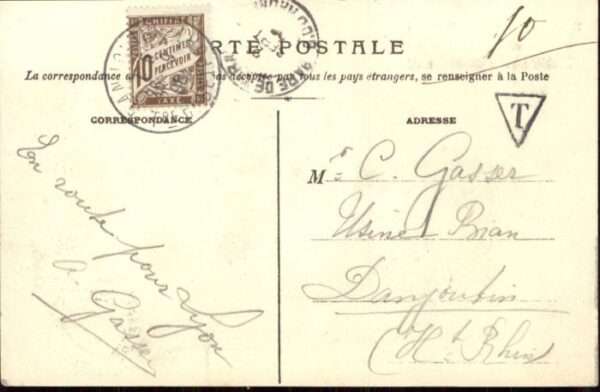 10
CARTE POSTALE
CHIFFRE
10 CENTIMES
À PERCEVOIR
TAXE
GARE DE
La correspondance au acceptée par tous les pays étrangers, se renseigner à la Poste
T
CORRESPONDANCE
ADRESSE
En route pour Lyon
a. Gasser
Mr C. Gasser
Usine Bian
Danjoutin
(Ht Rhin)